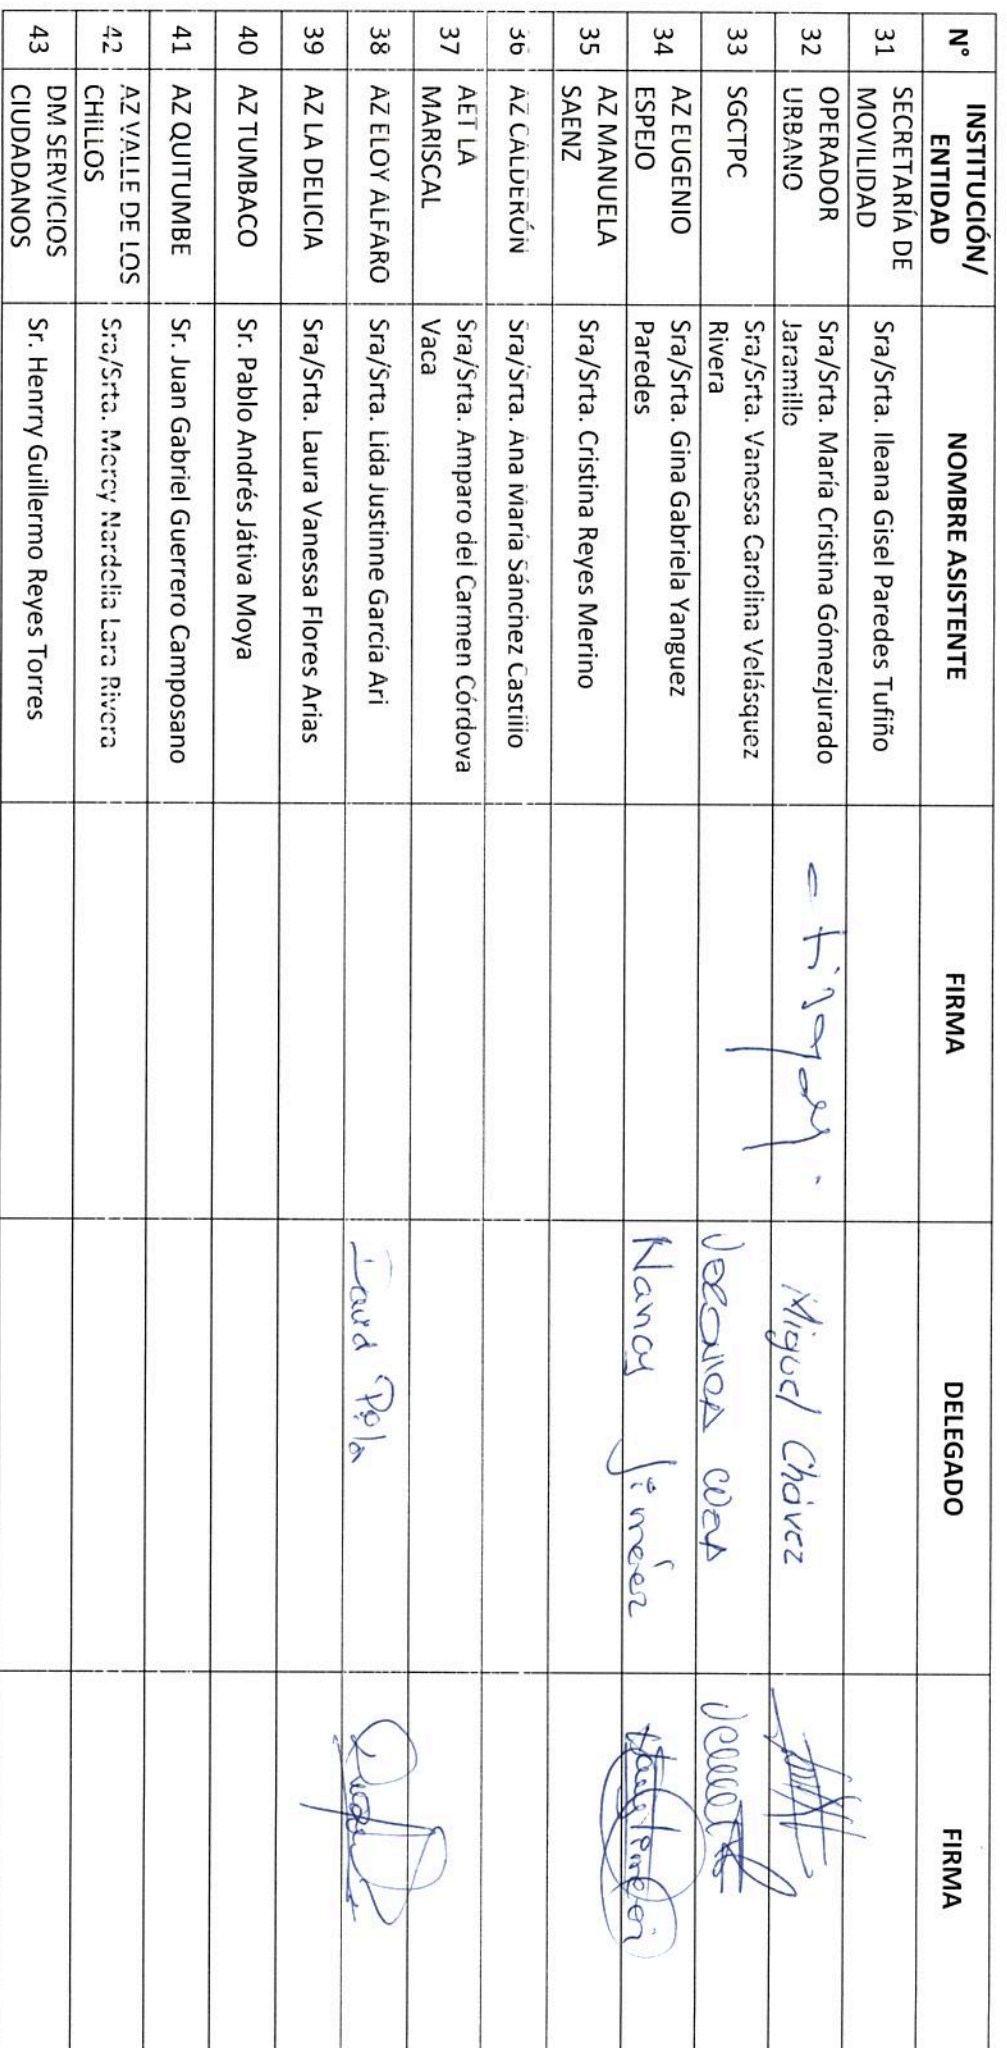 N° INSTITUCIÓN/ ENTIDAD NOMBRE ASISTENTE FIRMA DELEGADO FIRMA
31 SECRETARÍA DE MOVILIDAD Sra/Srta. Ileana Gisel Paredes Tufiño
32 OPERADOR URBANO Sra/Srta. María Cristina Gómezjurado Jaramillo Miguel Chávez
33 SGCTPC Sra/Srta. Vanessa Carolina Velásquez Rivera
34 AZ EUGENIO ESPEJO Sra/Srta. Gina Gabriela Yanguez Paredes Nancy Jiménez
35 AZ MANUELA SAENZ Sra/Srta. Cristina Reyes Merino
36 AZ CALDERÓN Sra/Srta. Ana María Sánchez Castillo
37 AET LA MARISCAL Sra/Srta. Amparo del Carmen Córdova Vaca
38 AZ ELOY ALFARO Sra/Srta. Lida Justinne García Ari David
39 AZ LA DELICIA Sra/Srta. Laura Vanessa Flores Arias
40 AZ TUMBACO Sr. Pablo Andrés Játiva Moya
41 AZ QUITUMBE Sr. Juan Gabriel Guerrero Camposano
42 AZ VALLE DE LOS CHILLOS Sra/Srta. Mercy Nardelia Lara Rivera
43 DM SERVICIOS CIUDADANOS Sr. Henrry Guillermo Reyes Torres